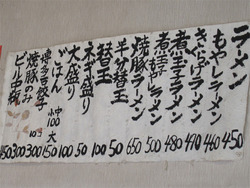 ラーメン 450
もやしラーメン 460
きくらげラーメン 410
煮玉子ラーメン 480
煮玉もやしラーメン 500
焼豚ラーメン 650
半分替玉 50
替玉 100
ネギ盛り 50
大盛り 100
ごはん 小100 中 大150
博多皿餃子 300
焼豚のみ 300
ビール中瓶 450